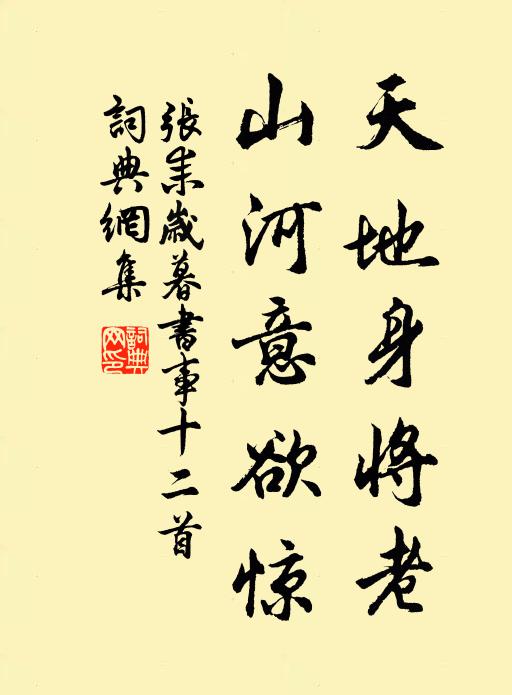 天地身将老
山河意欲惊
張耒歳暮書事十二首
詞典網集
詞典
网印